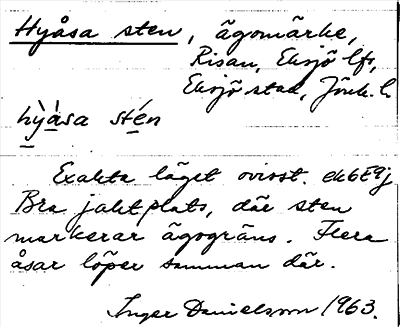 Hyåsa sten, ägomärke,
Risan, Eksjö lfs,
Eksjö stad, Jönk. l.
hỳàsa stén
Exakta läget ovisst. ek6E9j
Bra jaktplats, där sten
markerar ägogräns. Flera
åsar löper samman där.
Inger Danielsson 1963.